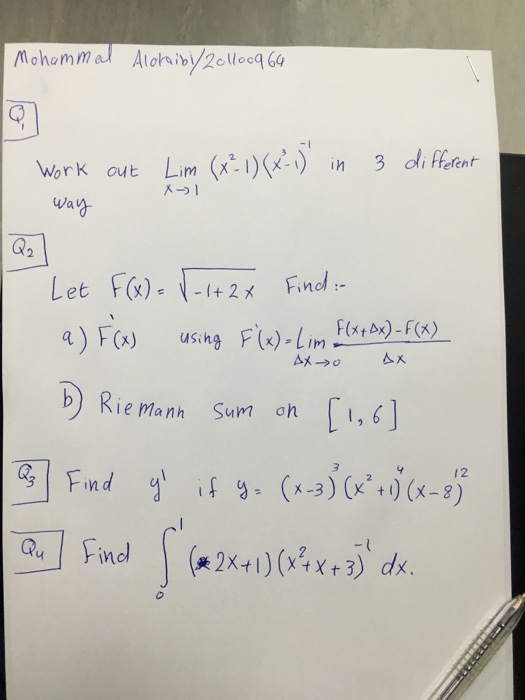 Mohammal Alotaibi/201100964
Q1
Work out Lim x→1 (x²-1)(x³-1)⁻¹ in 3 different
way
Q2
Let F(x) = √-1+2x Find :-
a) F'(x) using F'(x) = Lim Δx→0 F(x+Δx)-F(x) / Δx
b) Riemann Sum on [1,6]
Q3 Find y' if y = (x-3)³(x²+1)⁴(x-8)¹²
Q4 Find ∫₀¹ (2x+1)(x²+x+3)⁻¹ dx.